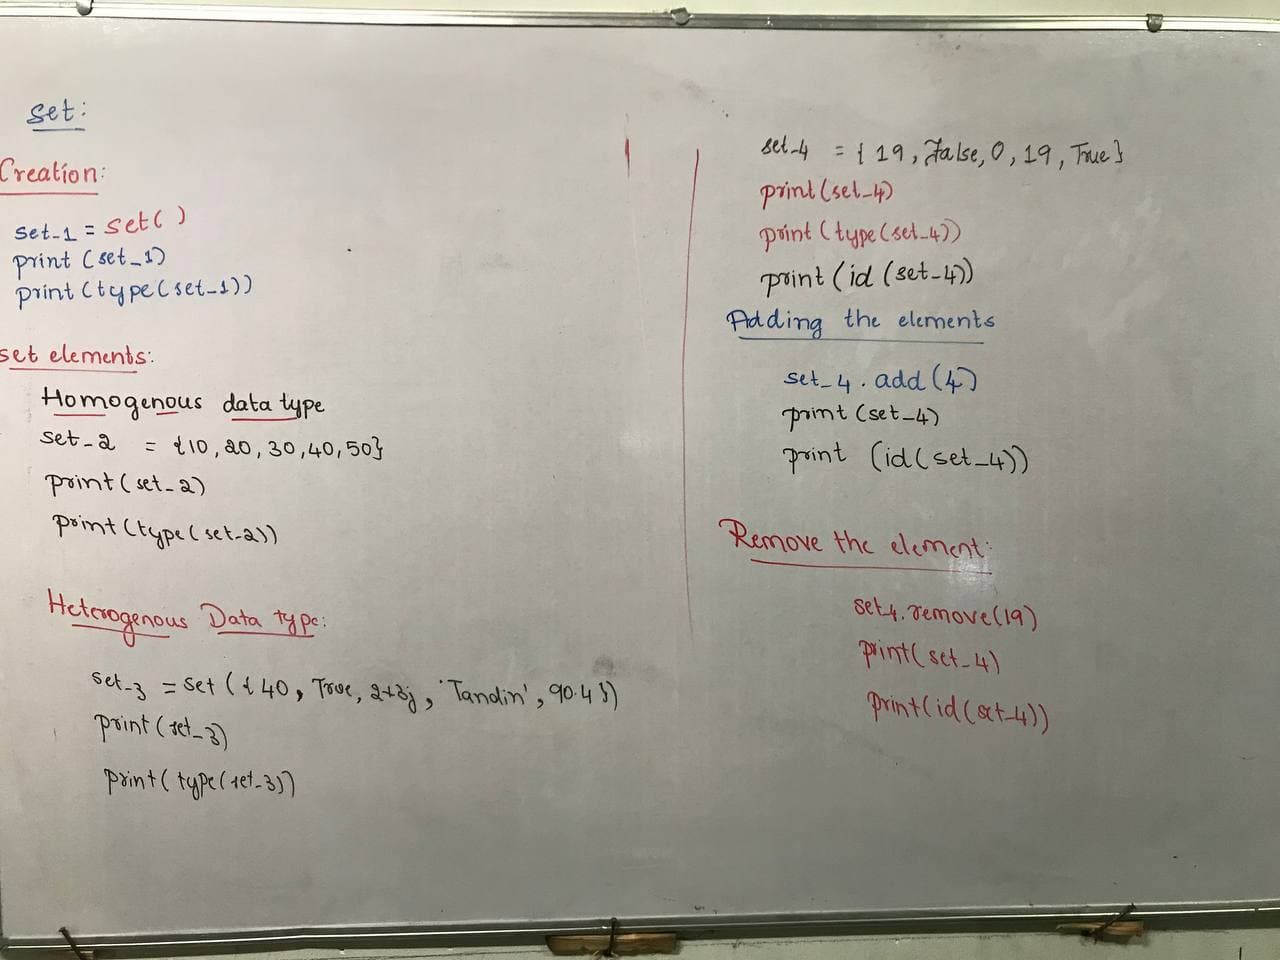 set:
Creation:
set_1 = set()
print (set_1)
print (type(set_1))
set elements:
Homogenous data type
set_2 = {10, 20, 30, 40, 50}
print(set_2)
print(type(set_2))
Heterogenous Data type:
set_3 = set ({40, True, 2+3j, 'Tandin', 90.4})
print(set_3)
print(type(set_3))
set_4 = {19, False, 0, 19, True}
print(set_4)
print(type(set_4))
print(id(set_4))
Adding the elements
set_4.add(4)
print(set_4)
print (id(set_4))
Remove the element:
set4.remove(19)
print(set_4)
print(id(set_4))